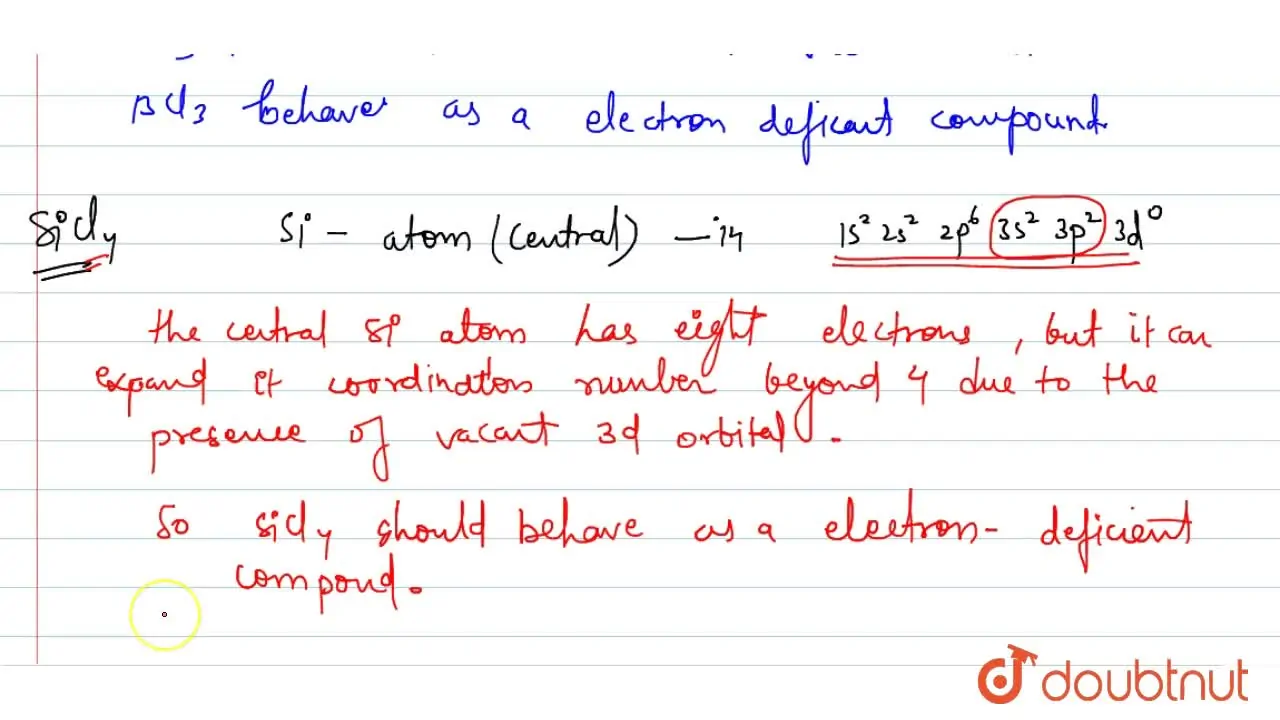 BCl3 behave as a electron deficant compound.
SiCl4 Si - atom (central) - 14 1s² 2s² 2p⁶ 3s² 3p² 3d⁰
the central Si atom has eight electrons, but it can
expand it coordination number beyond 4 due to the
presence of vacant 3d orbital.
So SiCl4 should behave as a electron- deficient
compoud.
doubtnut